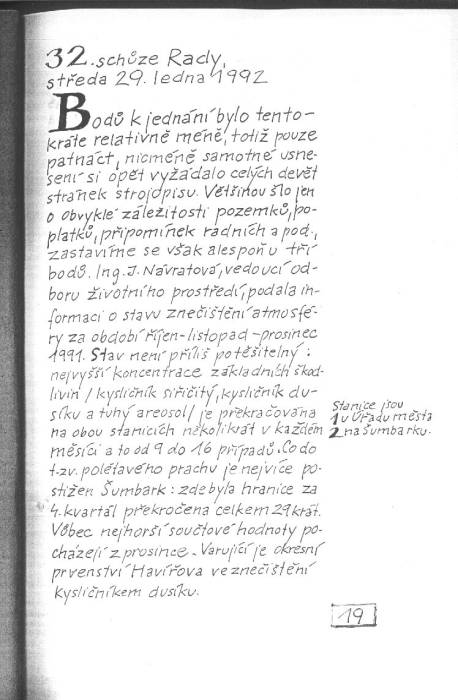 32. schůze Rady,
středa 29. ledna 1992
Bodů k jednání bylo tento-
kráte relativně méně, totiž pouze
patnáct, nicméně samotné usne-
sení si opět vyžádalo celých devět
stránek strojopisu. Většinou šlo jen
o obvyklé záležitosti pozemků, po-
platků, připomínek radních a pod.,
zastavíme se však alespoň u tří
bodů. Ing. J. Návratová, vedoucí od-
boru životního prostředí, podala in-
formaci o stavu znečištění atmosfé-
ry za období říjen-listopad-prosinec
1991. Stav není příliš potěšitelný:
nejvyšší koncentrace základních škod-
livin / kysličník siřičitý, kysličník du-
síku a tuhý areosol / je překračována
na obou stanicích několikrát v každém
měsíci a to od 9 do 16 případů. Co do
t.zv. polétavého prachu je nejvíce po-
stižen Šumbark: zde byla hranice za
4. kvartál překročena celkem 29 krát.
Vůbec nejhorší součtové hodnoty po-
cházejí z prosince. Varující je okresní
prvenství Havířova ve znečištění
kysličníkem dusíku.
Stanice jsou
1 u Úřadu města
2 na Šumbarku.
19